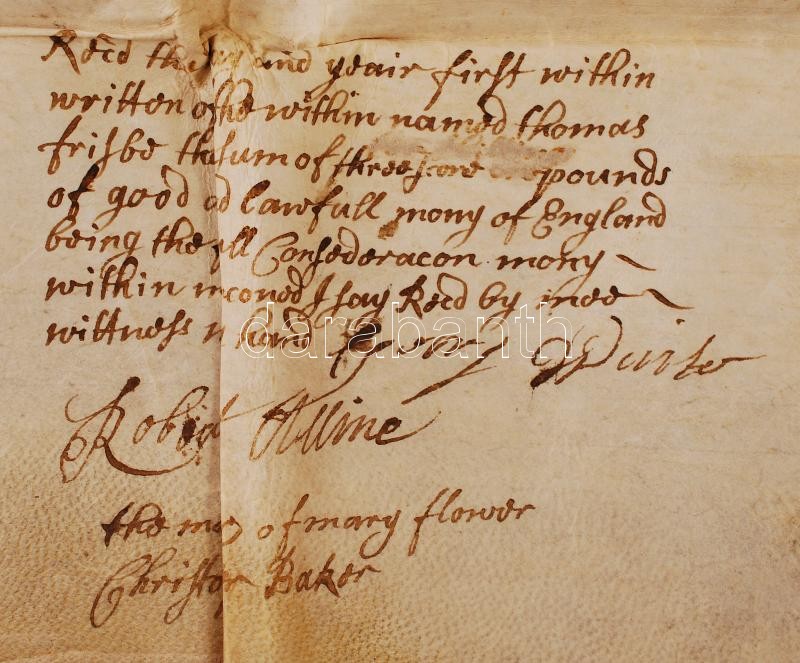 Recd the and yeair first within
written of the within named thomas
frisbe the sum of threescore pounds
of good and Lawfull mony of England
being the full Consederacon mony
within menconed I say Recd by mee
wittness my hand
darabanth
Robert Alline
the mark of mary flower
Christop Baker